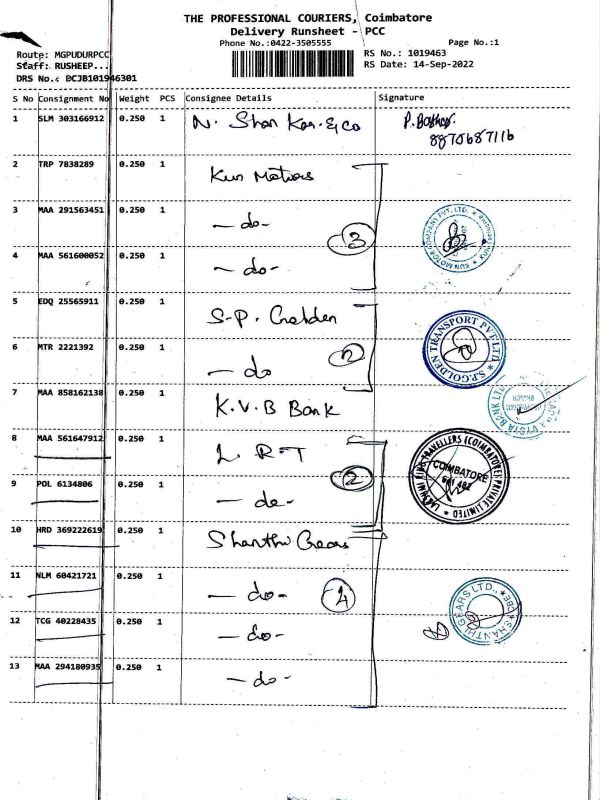 THE PROFESSIONAL COURIERS, Coimbatore
Delivery Runsheet - PCC
Phone No.:0422-3505555 Page No.:1
Route: MGPUDURPCC RS No.: 1019463
Staff: RUSHEEP... RS Date: 14-Sep-2022
DRS No.: BCJB101946301
S No Consignment No Weight PCS Consignee Details Signature
1 SLM 303166912 0.250 1 N. Shan Kar. & Co P. Baskar.
8870687116
2 TRP 7838289 0.250 1 Kun Motors
3 MAA 291563451 0.250 1 - do - 3
4 MAA 561600052 0.250 1 - do -
KUN MOTOR COMPANY PVT. LTD.
5 EDQ 25565911 0.250 1 S.P. Golden
6 MTR 2221392 0.250 1 - do 2
S.P.GOLDEN TRANSPORT PVT LTD.
7 MAA 858162138 0.250 1 K.V.B Bank
VYSYA BANK LTD
8 MAA 561647912 0.250 1 L. R. T
9 POL 6134806 0.250 1 - do - 2
TRAVELLERS (COIMBATORE) PRIVATE LIMITED
COIMBATORE
10 HRD 369222619 0.250 1 Shanthi Gears
11 NLM 60421721 0.250 1 - do - 4
12 TCG 40228435 0.250 1 - do -
SHANTHI GEARS LTD., CBE
13 MAA 294180935 0.250 1 - do -